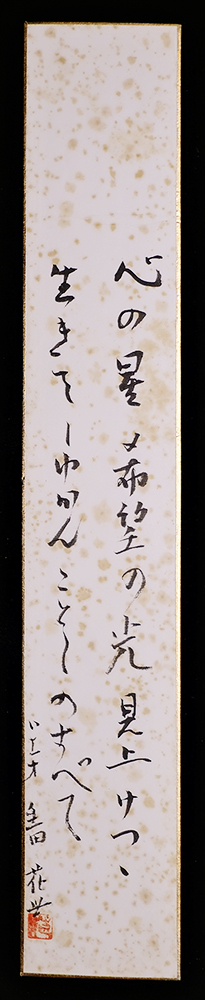 心の星希望の光見上けつゝ
生きてしゆかんことしのすべて
才 生田花世